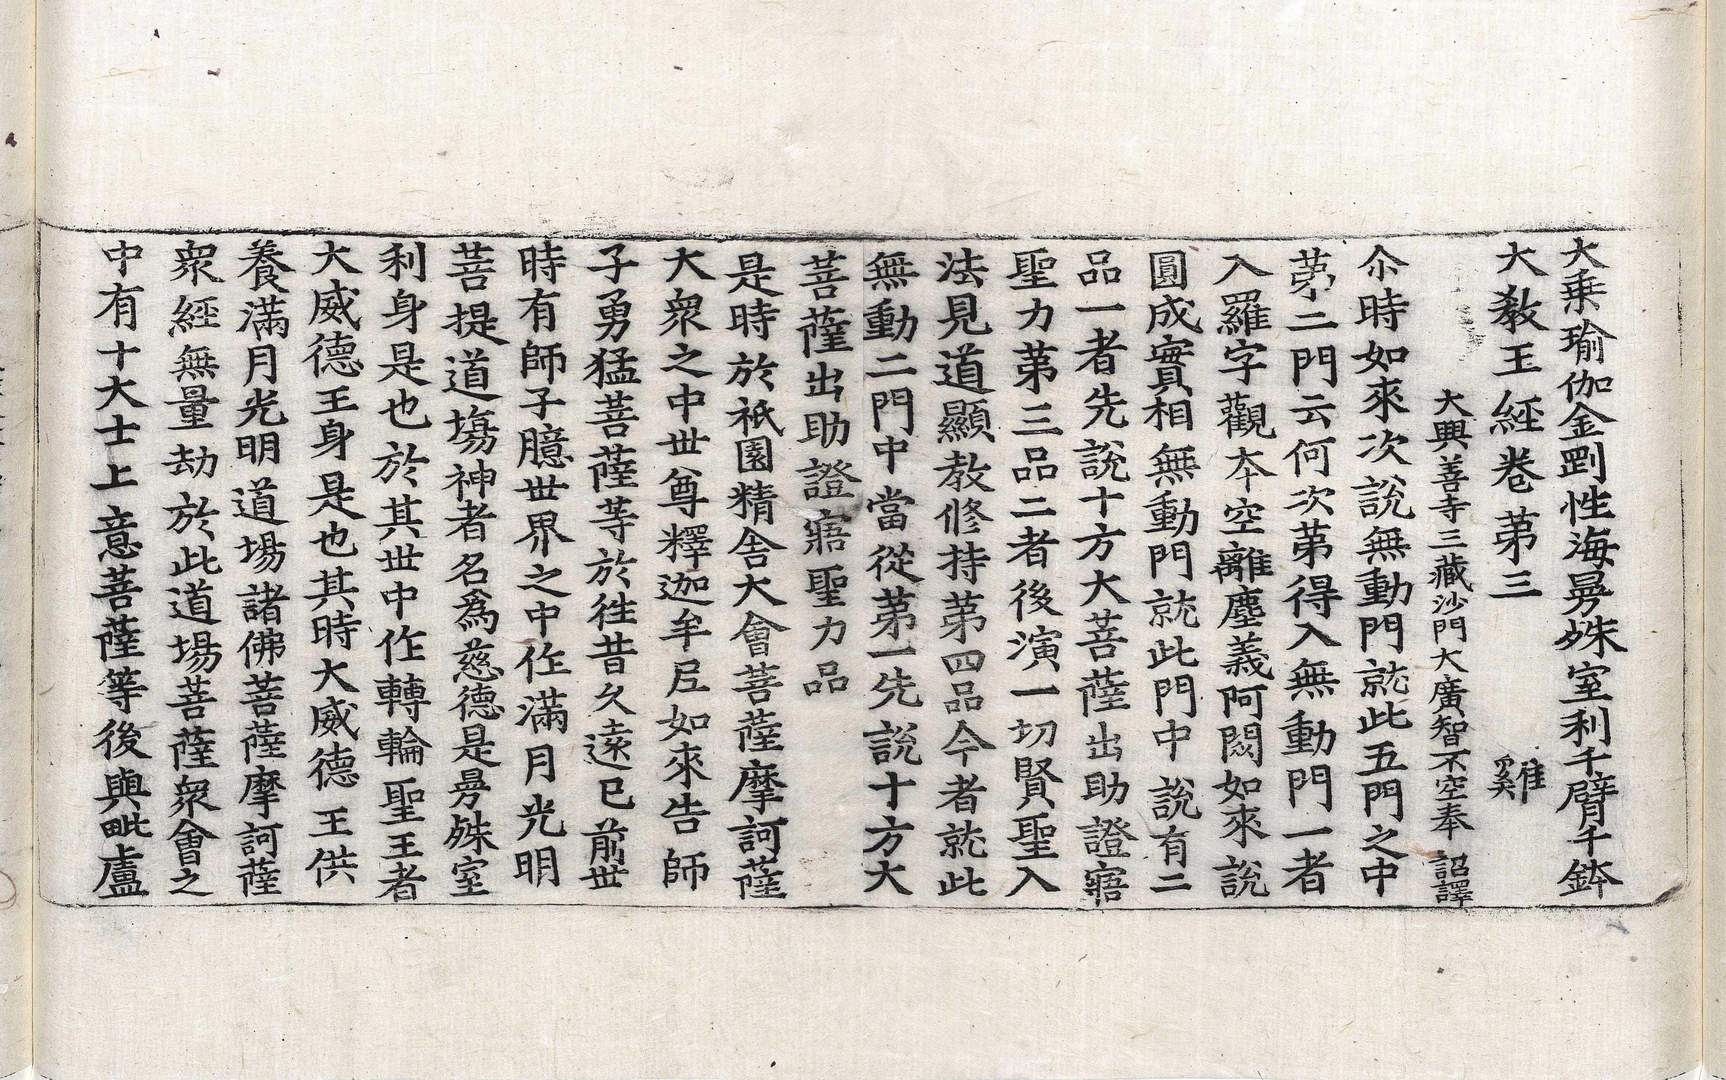 大乘瑜伽金剛性海曼殊室利千臂千鉢
大教王經卷第三 雞
大興善寺三藏沙門大廣智不空奉 詔譯
尒時如來次說無動門就此五門之中
苐二門云何次苐得入無動門一者
入羅字觀本空離塵義阿閦如來說
圓成實相無動門就此門中說有二
品一者先說十方大菩薩出助證寤
聖力苐三品二者後演一切賢聖入
法見道顯教修持苐四品今者就此
無動二門中當從苐一先說十方大
菩薩出助證寤聖力品
是時於祇園精舍大會菩薩摩訶薩
大衆之中世尊釋迦牟尼如來告師
子勇猛菩薩等於往昔久遠已前世
時有師子臆世界之中作滿月光明
菩提道場神者名爲慈德是曼殊室
利身是也於其世中作轉輪聖王者
大威德王身是也其時大威德王供
養滿月光明道場諸佛菩薩摩訶薩
衆經無量劫於此道場菩薩衆會之
中有十大士上意菩薩等後與毗盧